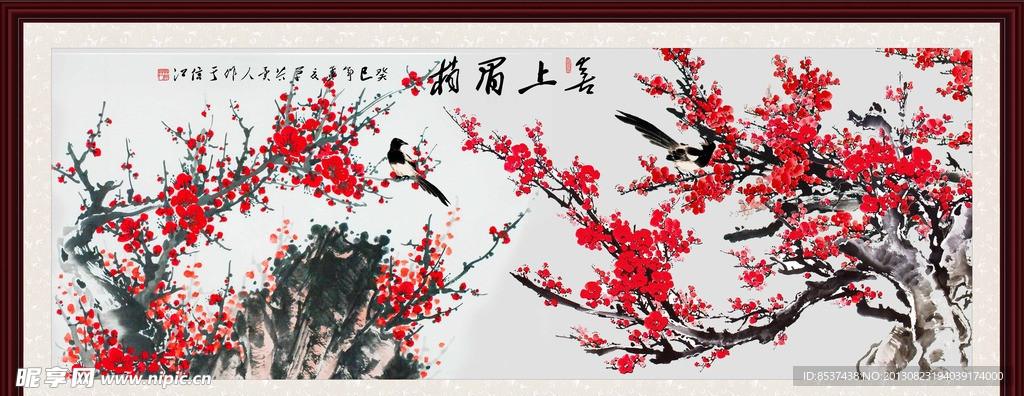 喜上眉梢
癸巳年夏人作于
昵享网 www.nipic.cn
ID:8537438 NO:20130823194039174000